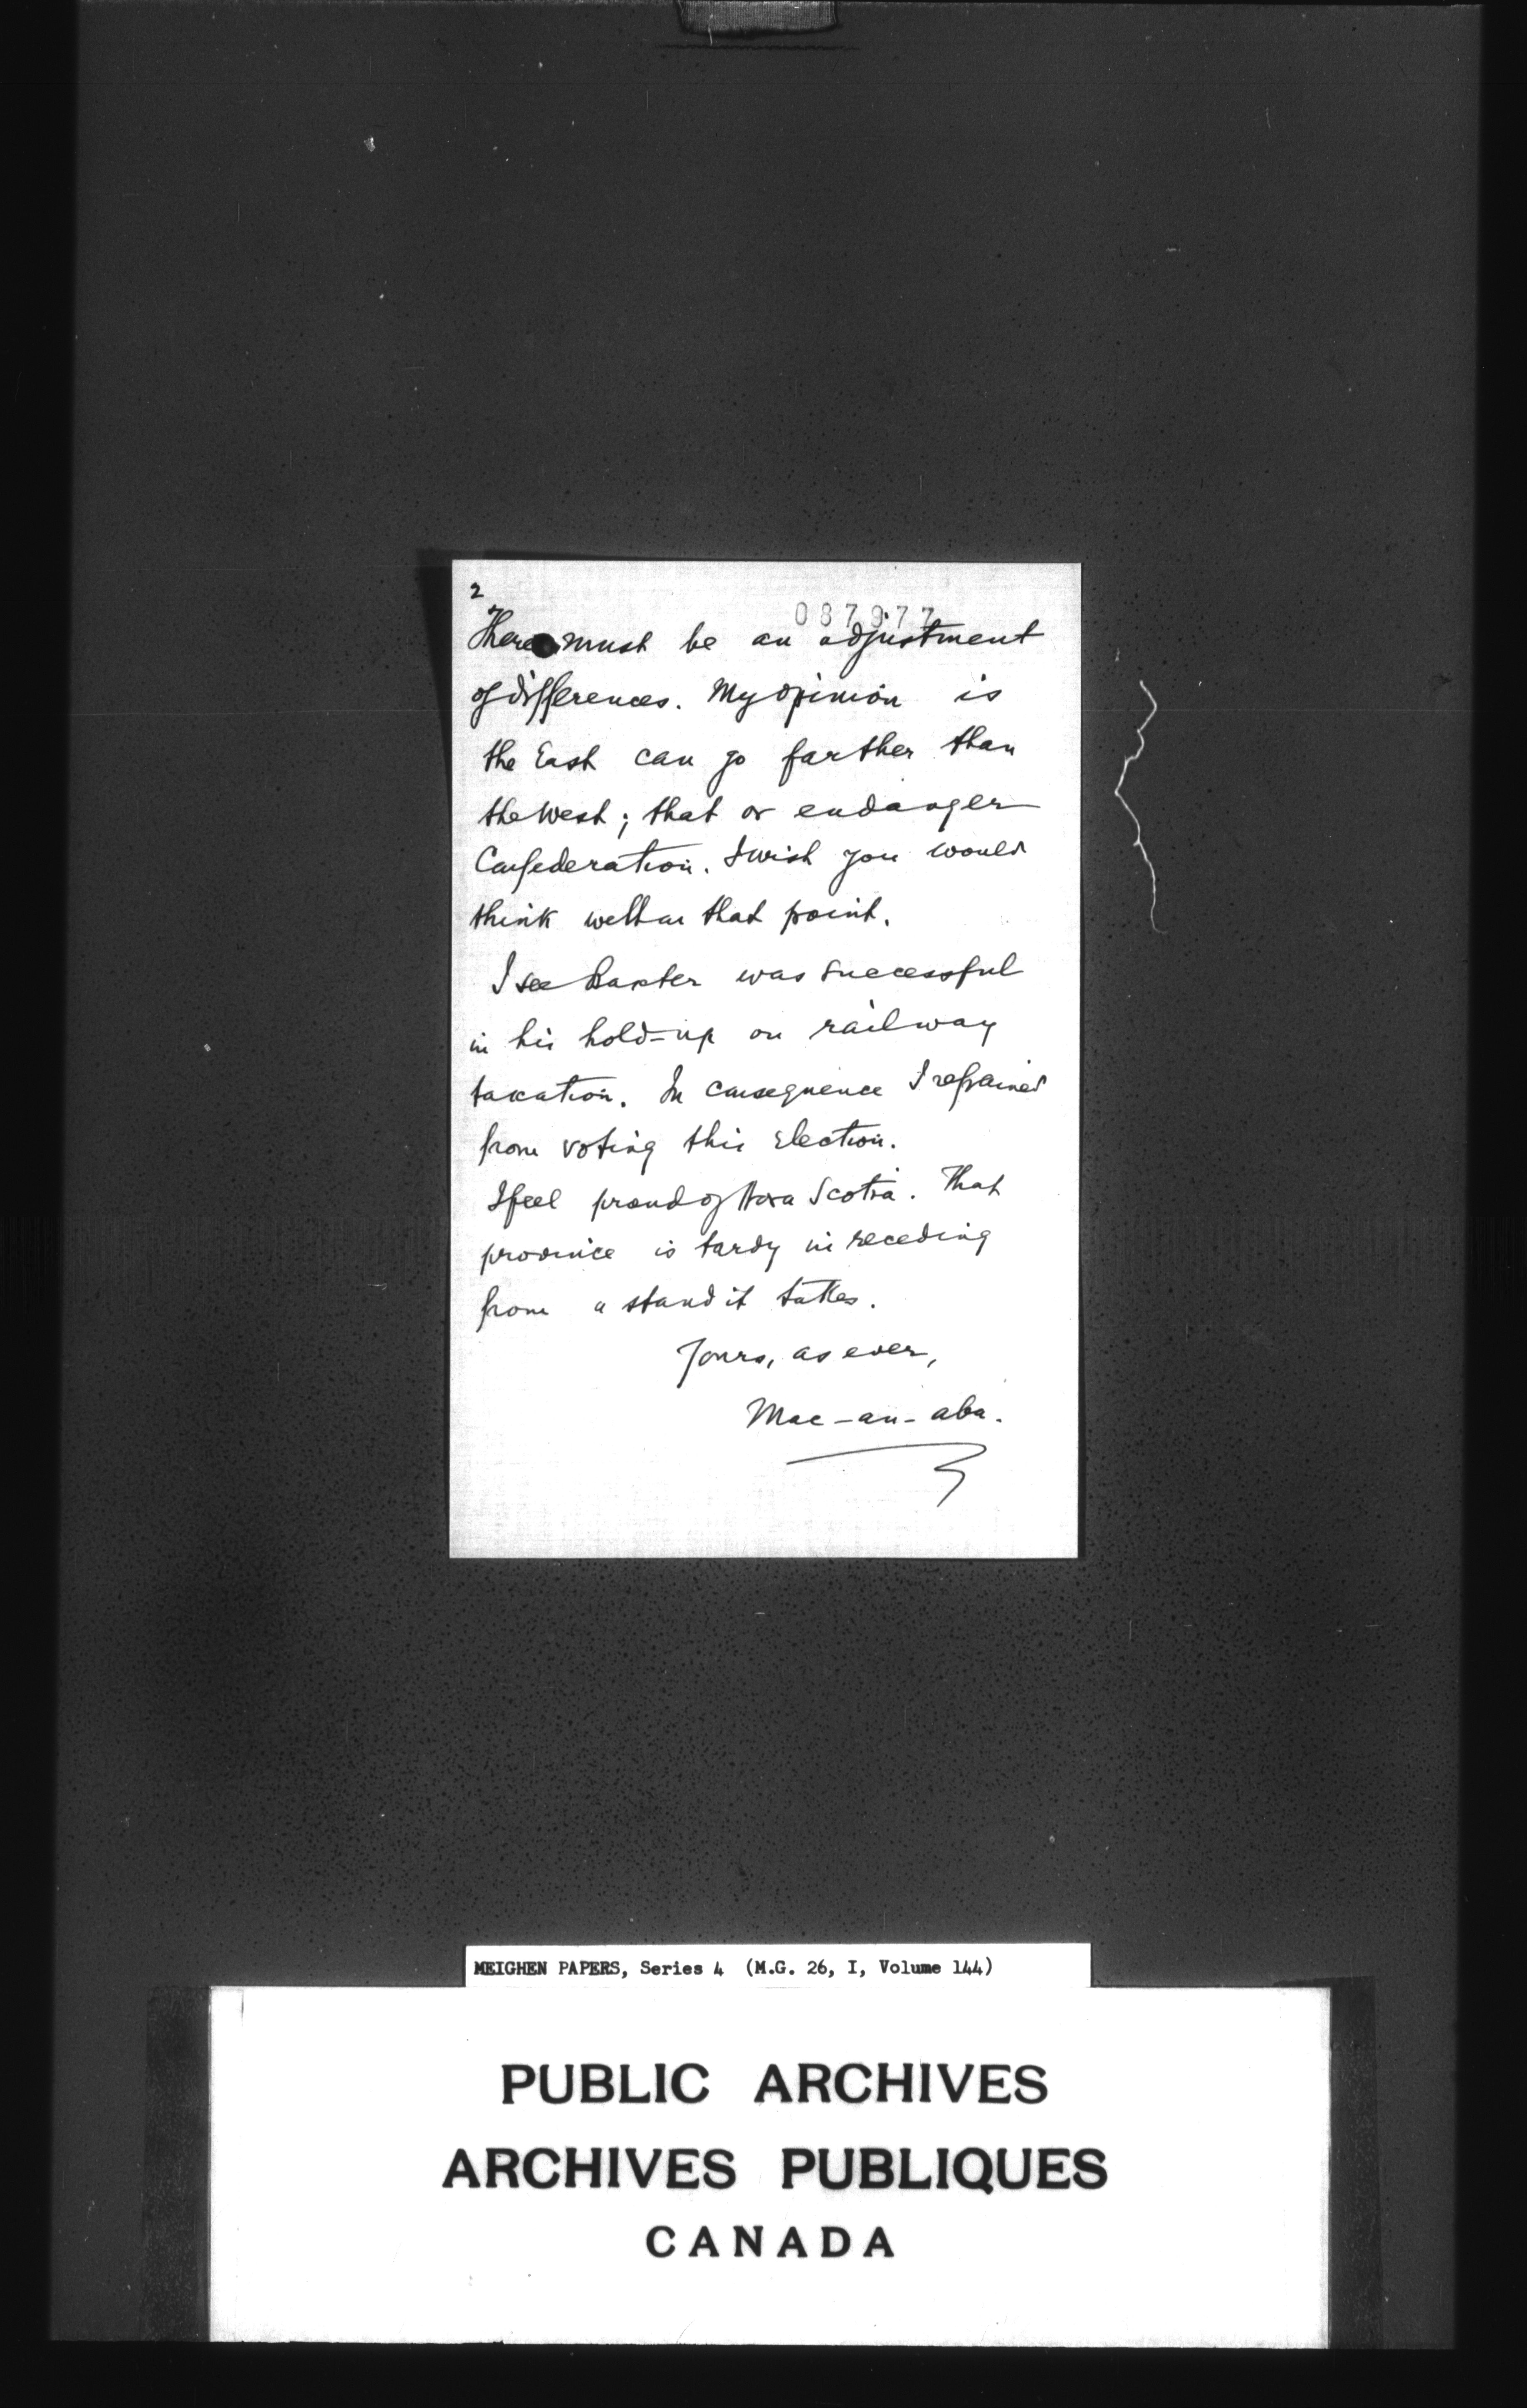 2
087977
There must be an adjustment
of differences. My opinion is
the East can go farther than
the West; that or endanger
Confederation. I wish you would
think well on that point.
I see Baxter was successful
in his hold-up on railway
taxation. In consequence I refrained
from voting this election.
I feel proud of Nova Scotia. That
province is tardy in receding
from a stand it takes.
Yours, as ever,
Mac-an-aba.
MEIGHEN PAPERS, Series 4 (M.G. 26, I, Volume 144)
PUBLIC ARCHIVES
ARCHIVES PUBLIQUES
CANADA